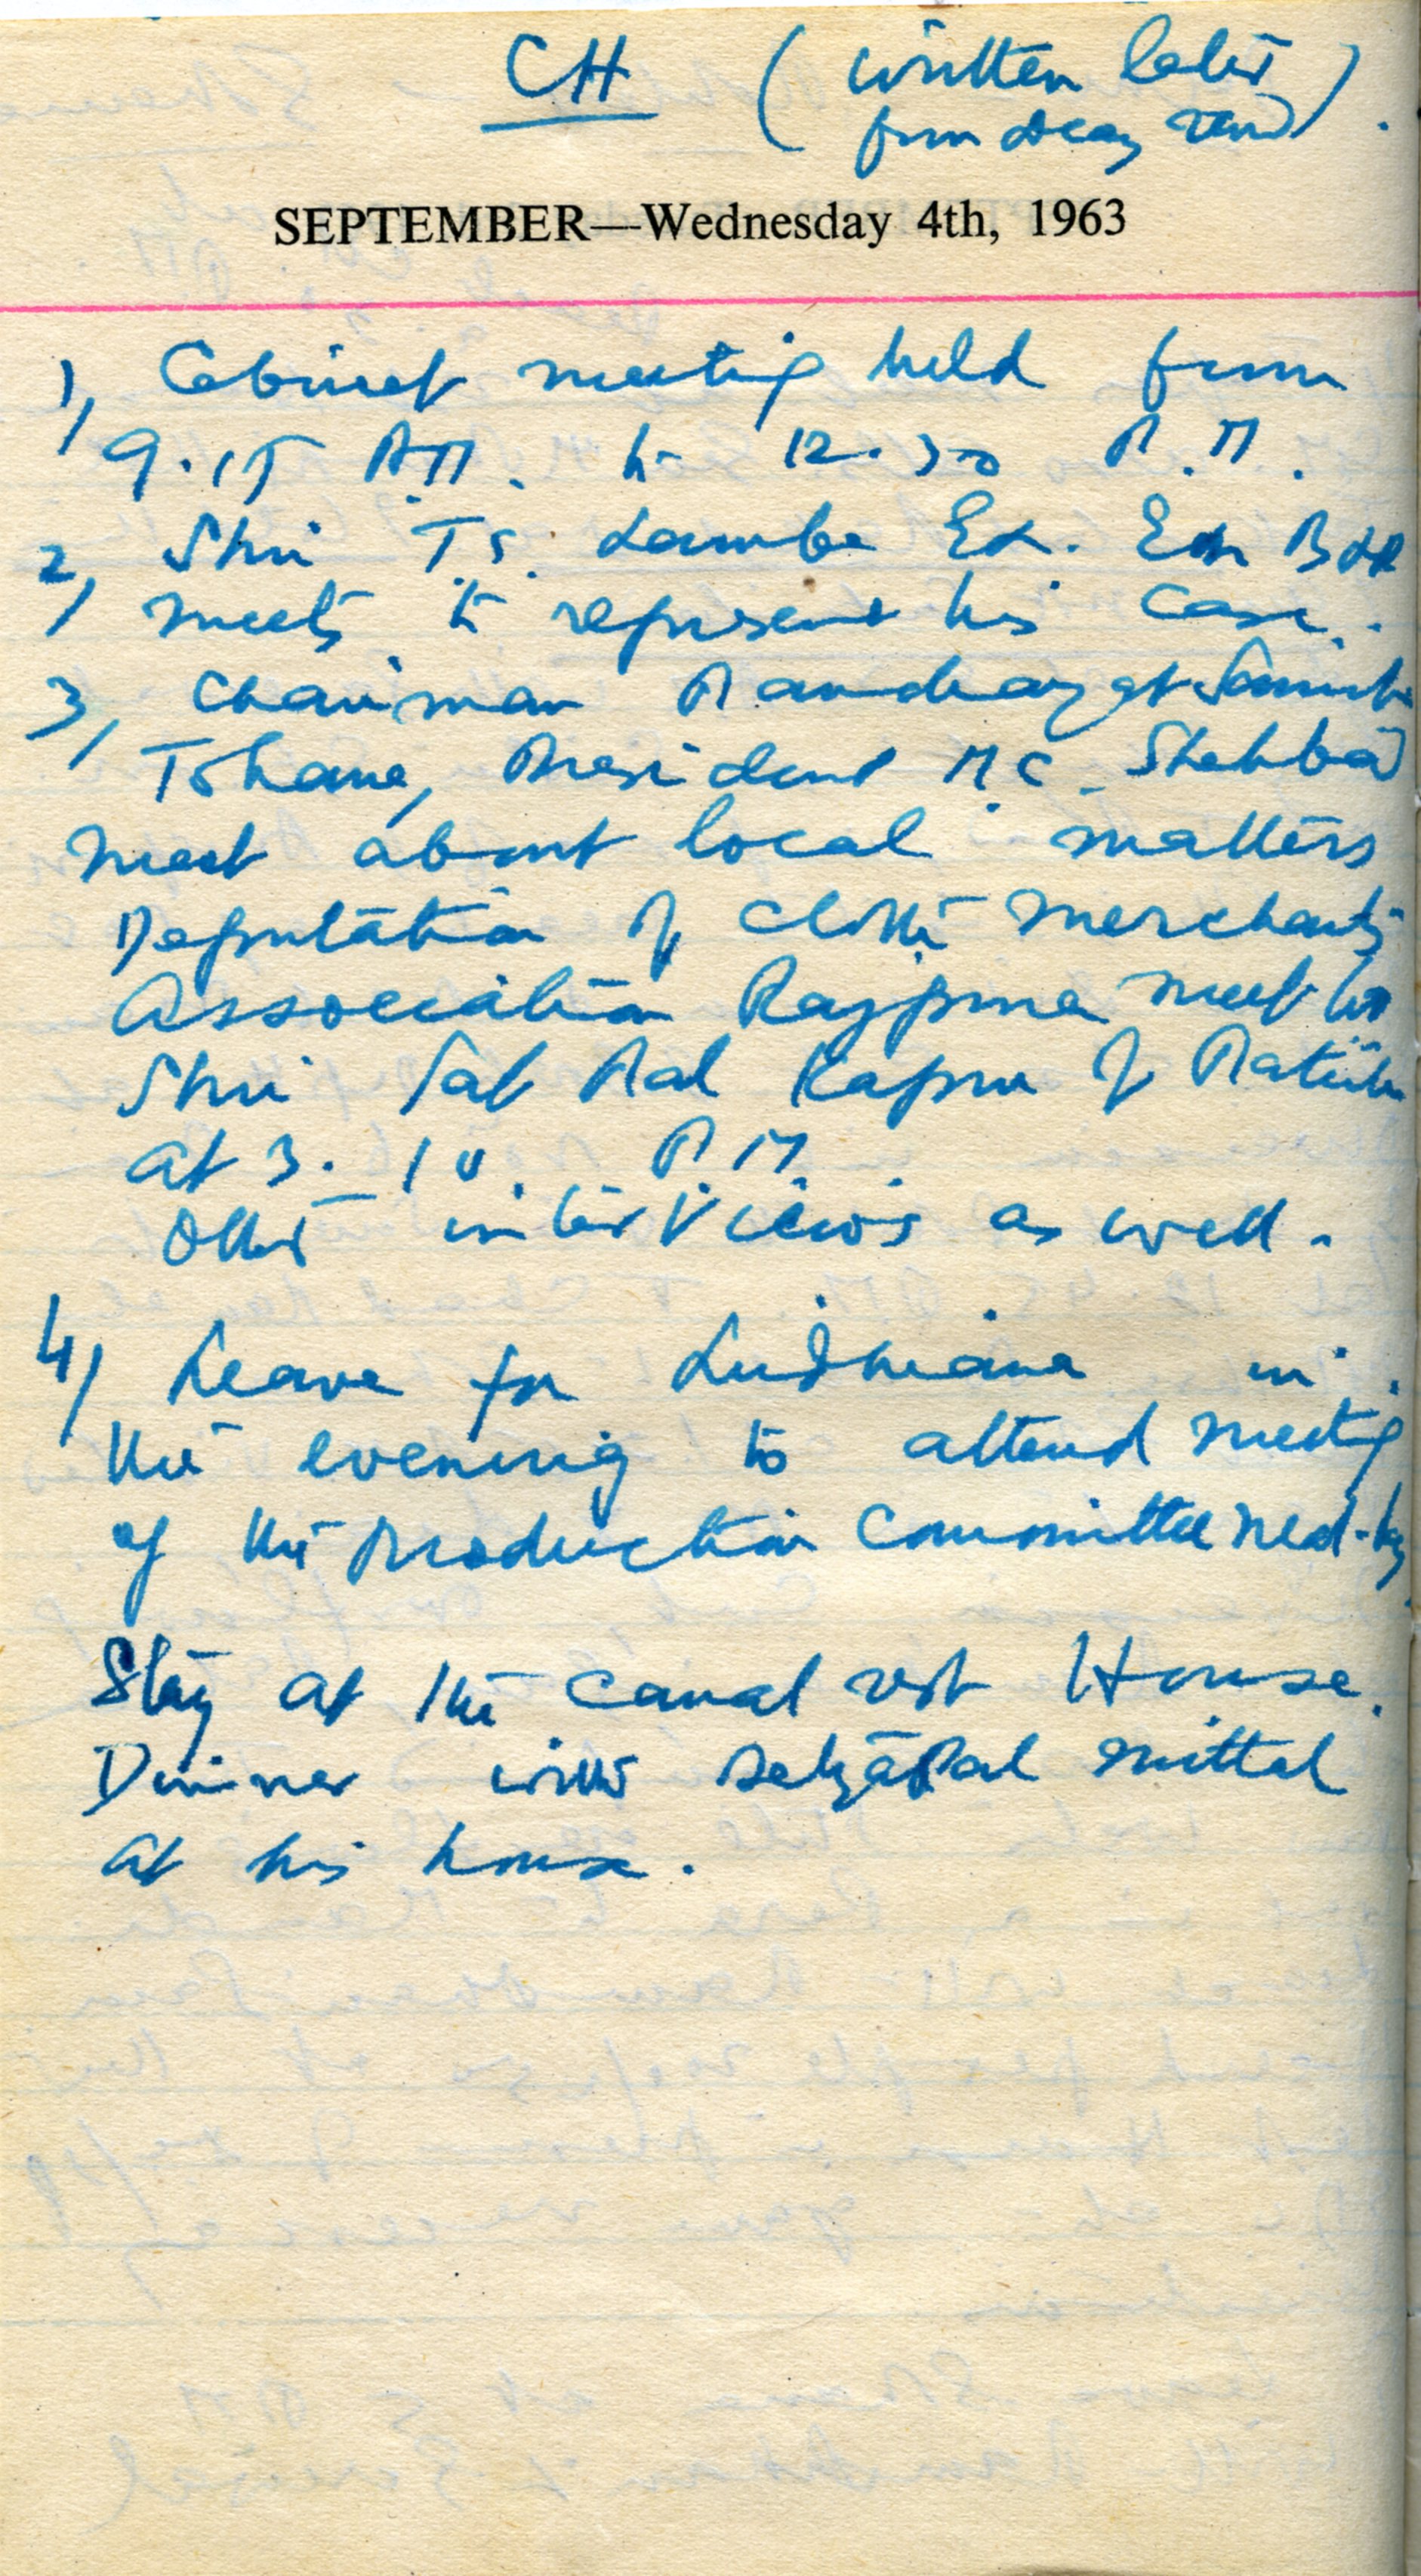 CH (written later
from diary
SEPTEMBER—Wednesday 4th, 1963
1, Cabinet meeting held from
9.15 A.M. to 12.30 P.M.
2, Shri T.S. Lamba Ex. B&R
meets to represent his case.
3, Chairman Panchayat Samiti
Tohana, President M.C. Shahbad
meet about local matters
Deputation of cloth merchants
Association Rajpura meet too
Shri Sat Pal Kapur of Patiala
at 3.10 P.M.
Other interviews as well.
4, Leave for Ludhiana in
the evening to attend meeting
of the Production Committee next day
Stay at the canal rest House.
Dinner with Satyapal Mittal
at his house.